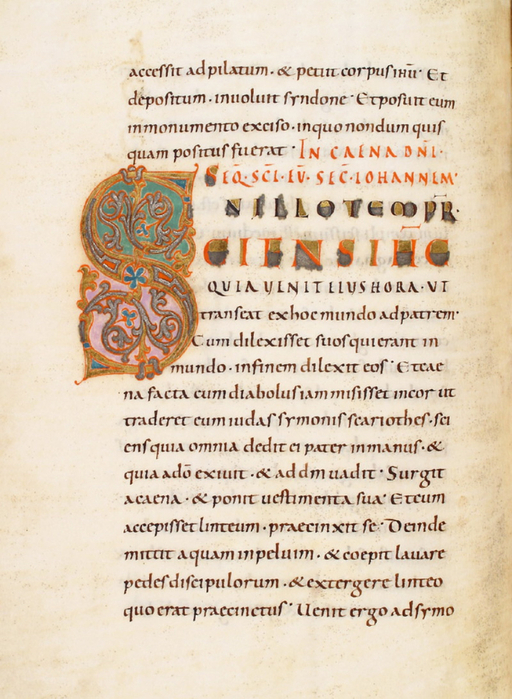 accessit ad pilatum · & petiit corpus ihū · Et
depositum · inuoluit syndone · Et posuit eum
in monumento exciso · in quo nondum quis
quam positus fuerat · IN CAENA DNĪ ·
SEQ · SCĪ · EV · SEC · IOHANNEM ·
S
IN ILLO TEMPR ·
SCIENS IHC
QUIA UENIT EIUS HORA · UT
transeat ex hoc mundo ad patrem ·
Cum dilexisset suos qui erant in
mundo · in finem dilexit eos · Et cae
na facta cum diabolus iam misisset in cor ut
traderet eum iudas symonis scariothes · sci
ens quia omnia dedit ei pater in manus · &
quia a dō exiuit · & ad dm uadit · Surgit
a caena · & ponit uestimenta sua · Et cum
accepisset linteum · praecinxit se · Deinde
mittit aquam in peluim · & coepit lauare
pedes discipulorum · & extergere linteo
quo erat praecinctus · Uenit ergo ad symo